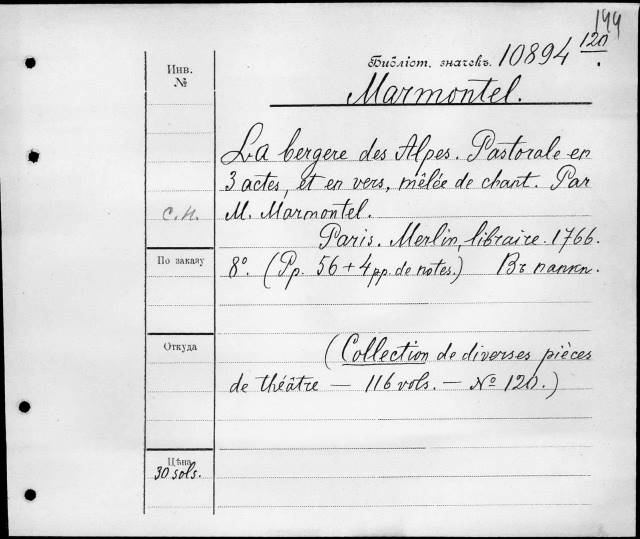 199
Инв.
№
Библіот. значекъ. 10894 120.
Marmontel.
La bergere des Alpes. Pastorale en
3 actes, et en vers, mêlée de chant. Par
с.н. M. Marmontel.
Paris. Merlin, libraire. 1766.
По заказу 8º. (Pp. 56 + 4 pp. de notes.) Въ папкѣ.
Откуда (Collection de diverses pièces
de théâtre — 116 vols. — № 120.)
Цѣна
30 sols.